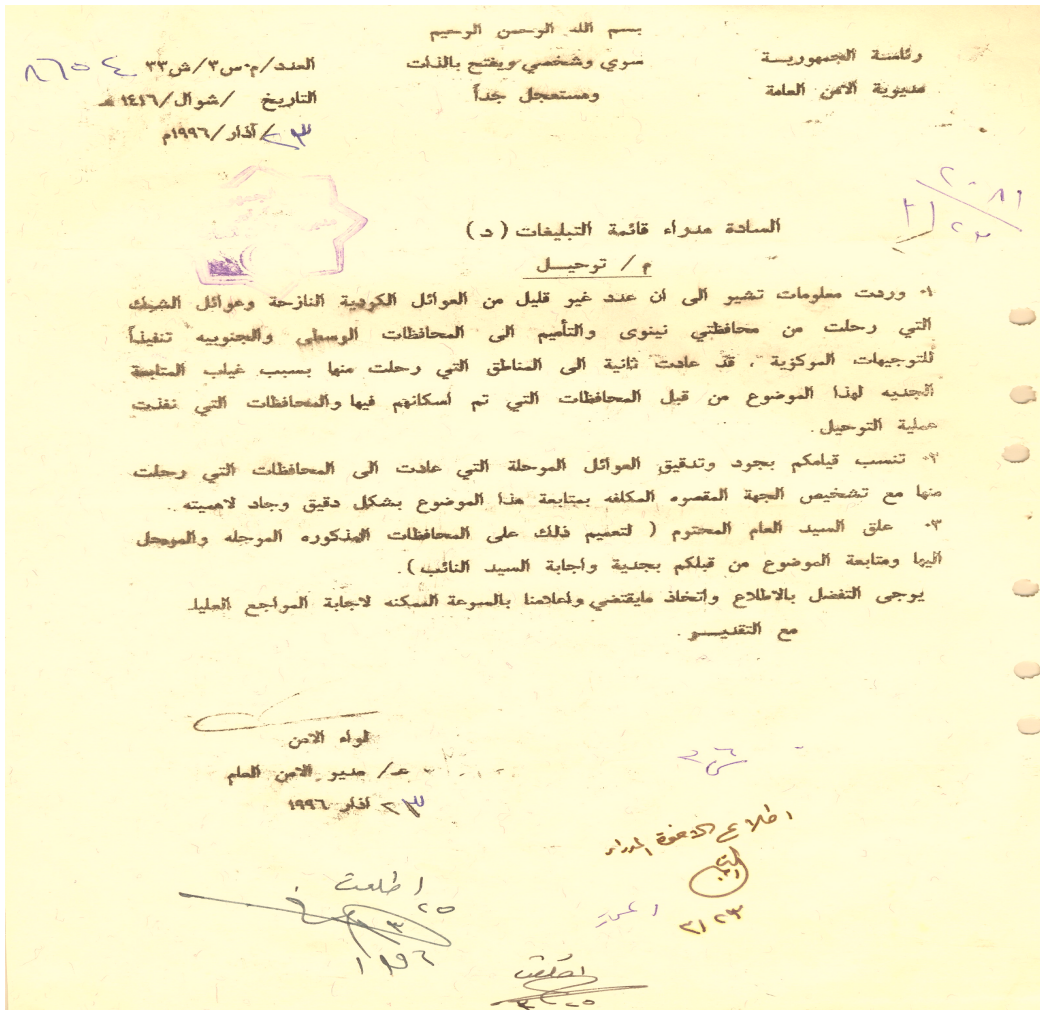 بسم الله الرحمن الرحيم
رئاسة الجمهوريـة
مديرية الامن العامة
سري وشخصي ويفتح بالذات
ومستعجل جداً
العدد/م٠س٣/ش٣٣ ٨٦٥٠٤
التاريخ /شوال/١٤١٦هـ
٢٣/آذار/١٩٩٦م
٢٠٨١
٢٣/٣
السادة مدراء قائمة التبليغات (د)
م/ ترحيــل
١٠ وردت معلومات تشير الى ان عدد غير قليل من العوائل الكردية النازحة وعوائل الشبك
التي رحلت من محافظتي نينوى والتأميم الى المحافظات الوسطى والجنوبيه تنفيذاً
للتوجيهات المركزية ، قد عادت ثانية الى المناطق التي رحلت منها بسبب غياب المتابعة
الجديه لهذا الموضوع من قبل المحافظات التي تم اسكانهم فيها والمحافظات التي نفذت
عملية الترحيل.
٢٠ تنسب قيامكم بجرد وتدقيق العوائل المرحلة التي عادت الى المحافظات التي رحلت
منها مع تشخيص الجهة المقصره المكلفه بمتابعة هذا الموضوع بشكل دقيق وجاد لاهميته ..
٣٠ علق السيد العام المحترم ( لتعميم ذلك على المحافظات المذكوره المرحله والمرحل
اليها ومتابعة الموضوع من قبلكم بجدية واجابة السيد النائب).
يرجى التفضل بالاطلاع واتخاذ مايقتضي واعلامنا بالسرعة الممكنه لاجابة المراجع العليا.
مع التقديــر .
لواء الامن
عـ/ مدير الامن العام
٢٣ اذار ١٩٩٦
اطلاع الاخوة المدراء
٣/٢٣
اطلعت
٢٥
٣
١٩٩٦
اطلعت
٣/٢٥